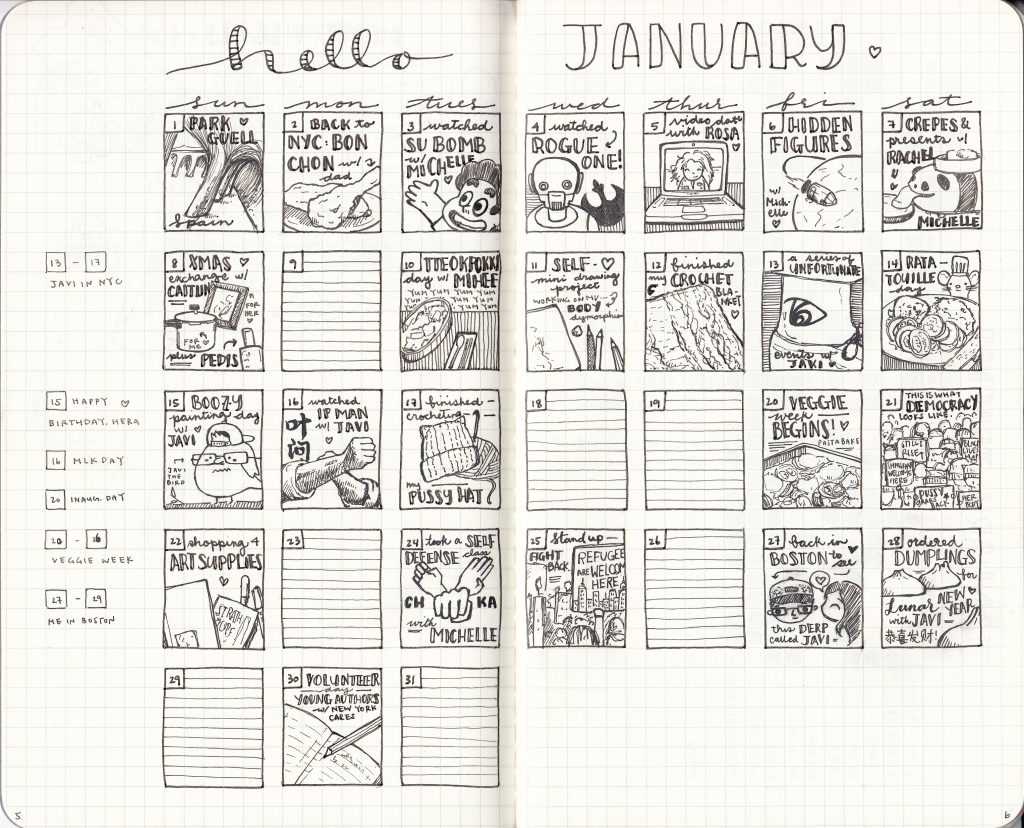 hello
JANUARY
sun mon tues wed thur fri sat
1 PARK
GUELL
Spain
2 BACK to
NYC: BON
CHON w/
dad
3 watched
SU BOMB
w/
MICHELLE
4 watched
ROGUE
ONE!
5 video date
with ROSA
6 HIDDEN
FIGURES
w/
Mich-
elle
7 CREPES &
presents w/
RACHEL
MICHELLE
13 - 17
JAVI IN NYC
8 XMAS
exchange w/
CAITLIN
FOR
HER
FOR
ME
plus PEDIS
9
10 TTEOKPOKKI
day w/ MIHEE
YUM YUM YUM YUM
YUM YUM YUM YUM
11 SELF-
mini drawing
project
WORKING ON MY
BODY
dysmorphia
12 finished
my CROCHET
BLA
NKET
13 a series of
UNFORTUNATE
events w/
JAVI
14 RATA-
TOUILLE
day
15 HAPPY
BIRTHDAY, HERA
16 MLK DAY
20 INAUG. DAY
15 BOOZY
painting day
w/
JAVI
JAVI
THE
BIRD
16 watched
IP MAN
w/ JAVI
叶
问
17 finished-
crocheting-
my
PUSSY HAT
18
19
20 VEGGIE
week
BEGINS!
PASTA BAKE
21 THIS IS WHAT
DEMOCRACY
LOOKS LIKE.
STILL
I RISE
BLACK
LIVES
IMMIGRANTS
WELCOME
HERE
PUSSY
GRABS
BACK
20 - 26
VEGGIE WEEK
27 - 29
ME IN BOSTON
22 shopping 4
ART SUPPLIES
23
24 took a SELF
DEFENSE class
CH KA
with
MICHELLE
25 Stand up-
FIGHT
BACK.
REFUGEES
ARE WELCOME
HERE
26
27 back in
BOSTON to
see
this DERP
called JAVI-
28 ordered
DUMPLINGS
for
Lunar NEW
YEAR
with JAVI-
恭喜发财!
29
30 VOLUNTEER
day
YOUNG AUTHORS
w/ NEW YORK
CARES
31
5
6